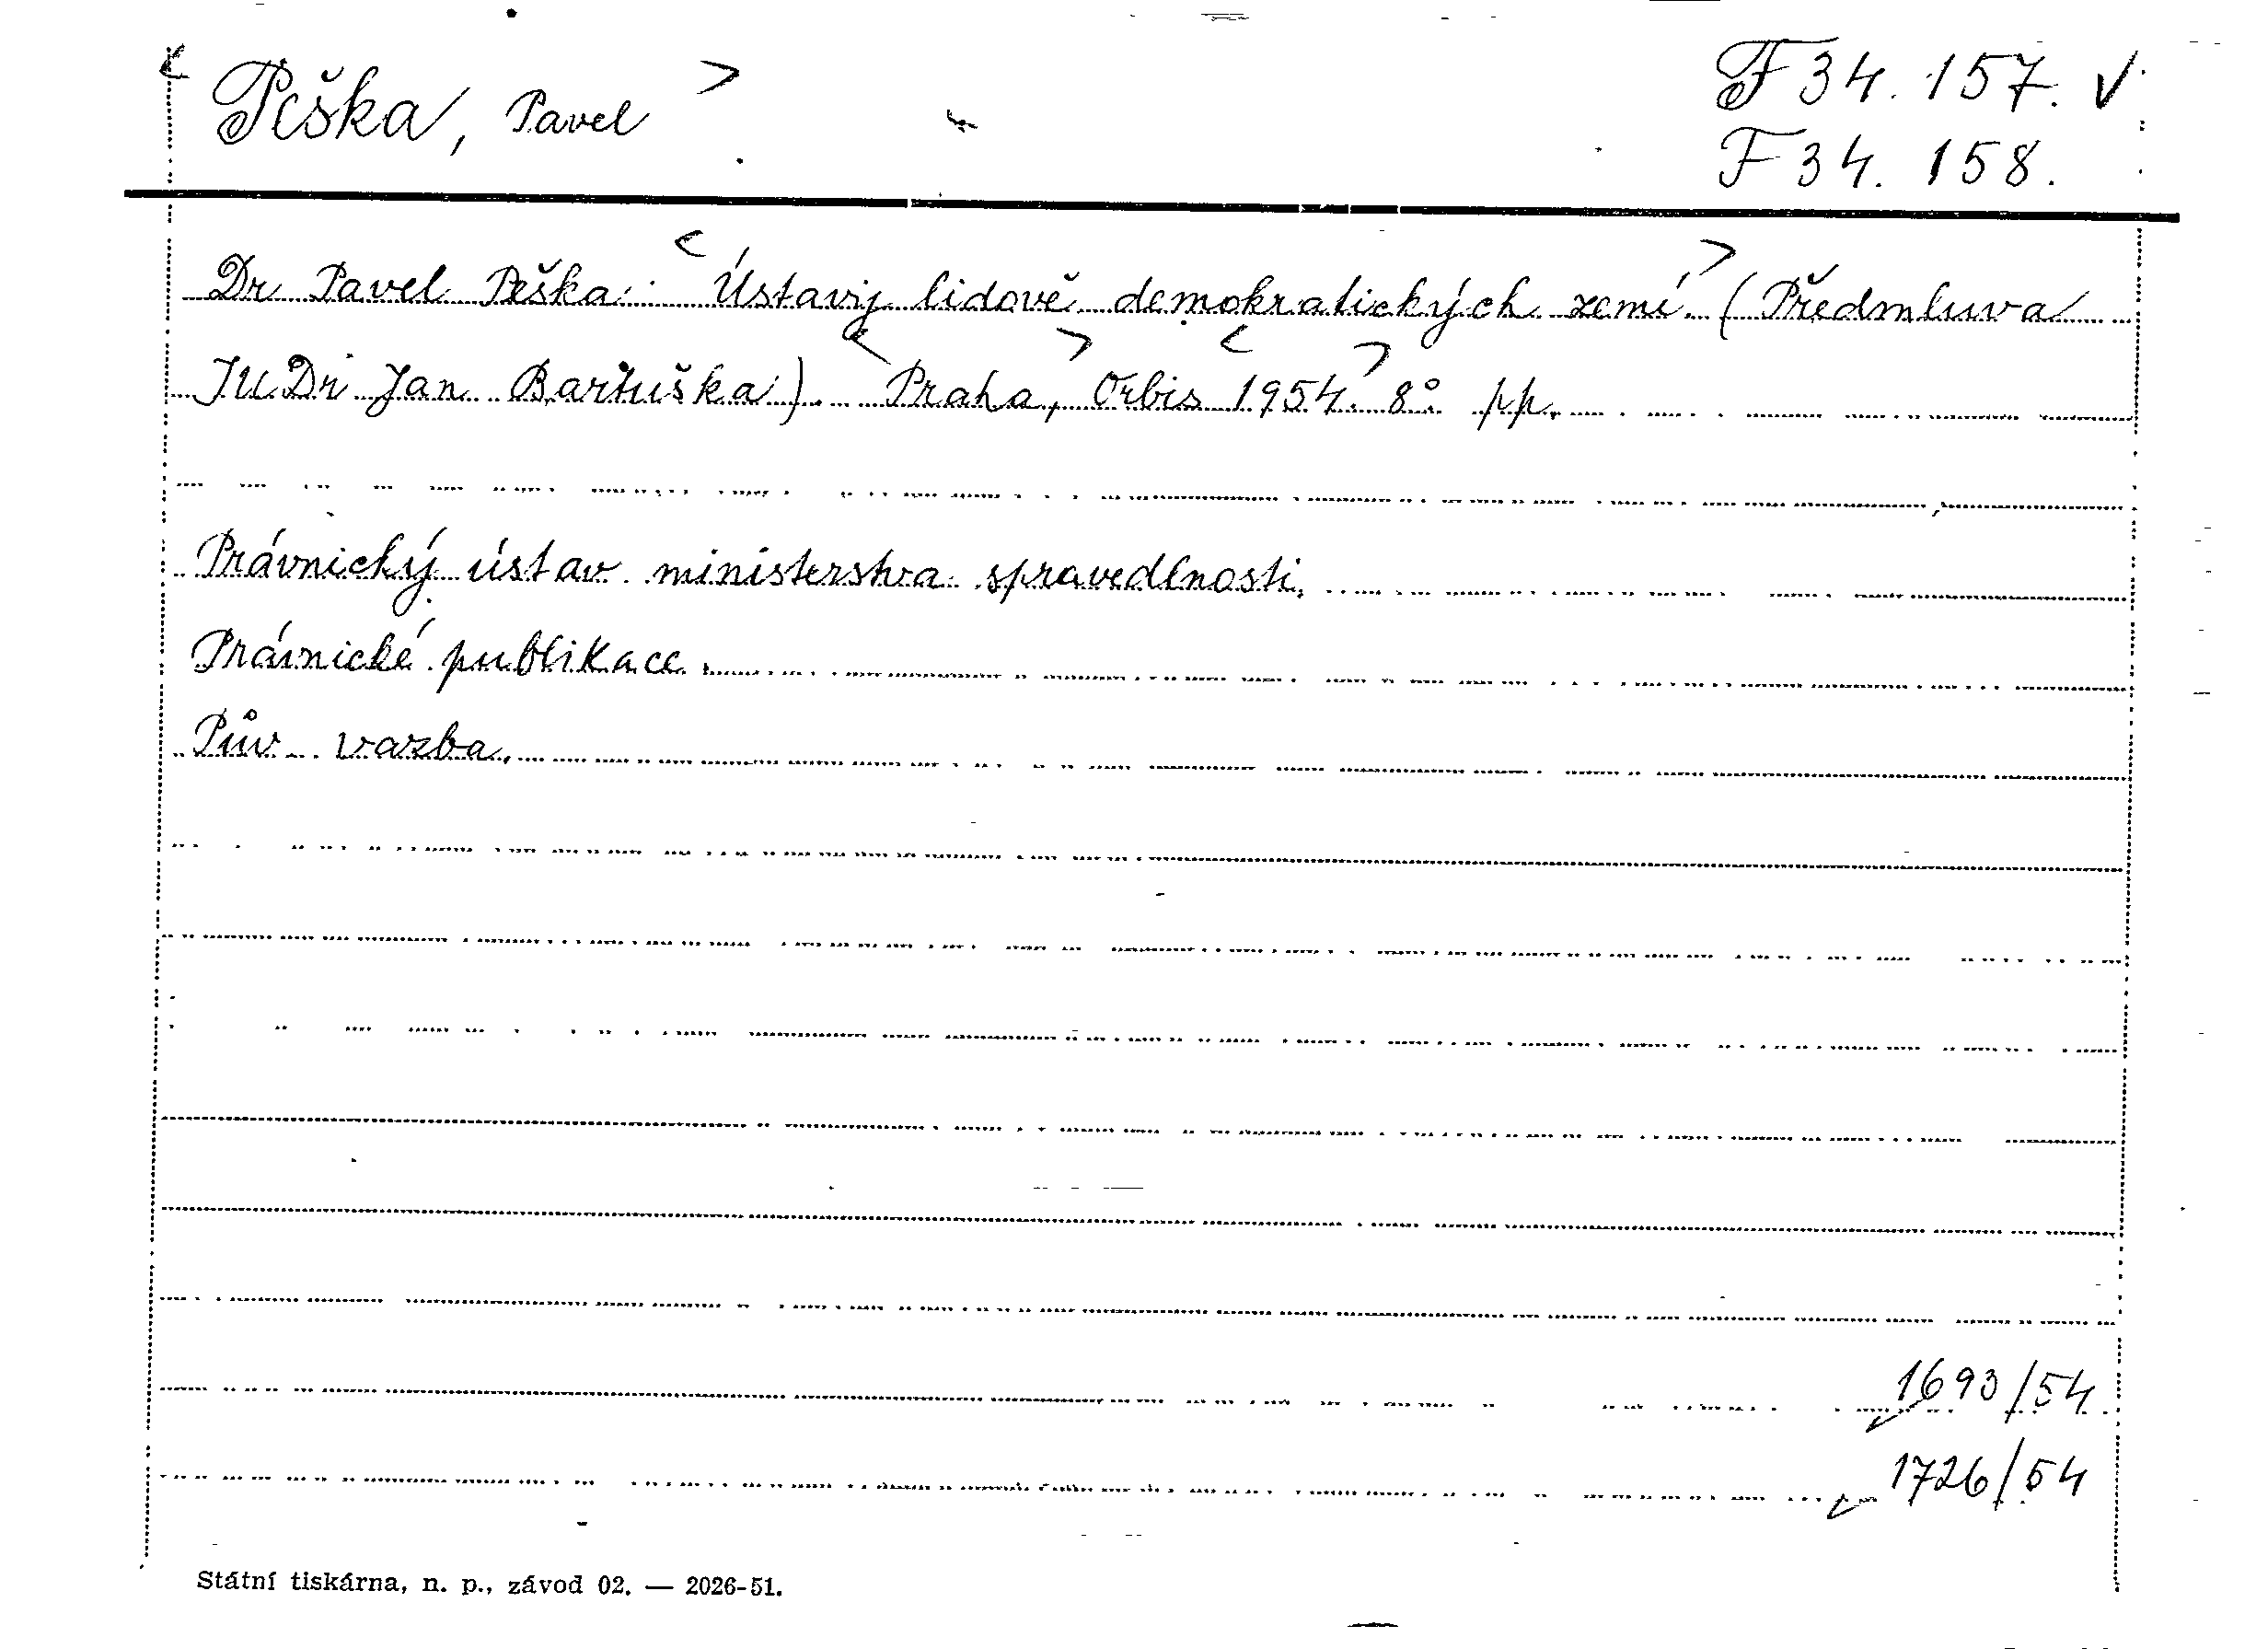 < Peška, Pavel > F 34.157. √
F 34.158.
Dr Pavel Peška: <Ústavy lidově demokratických zemí.> (Předmluva
JUDr Jan Bartuška). <Praha, > Orbis < 1954. > 8° pp.
Právnický ústav ministerstva spravedlnosti.
Právnické publikace.
Pův. vazba.
1693/54
1726/54
Státní tiskárna, n. p., závod 02. — 2026-51.